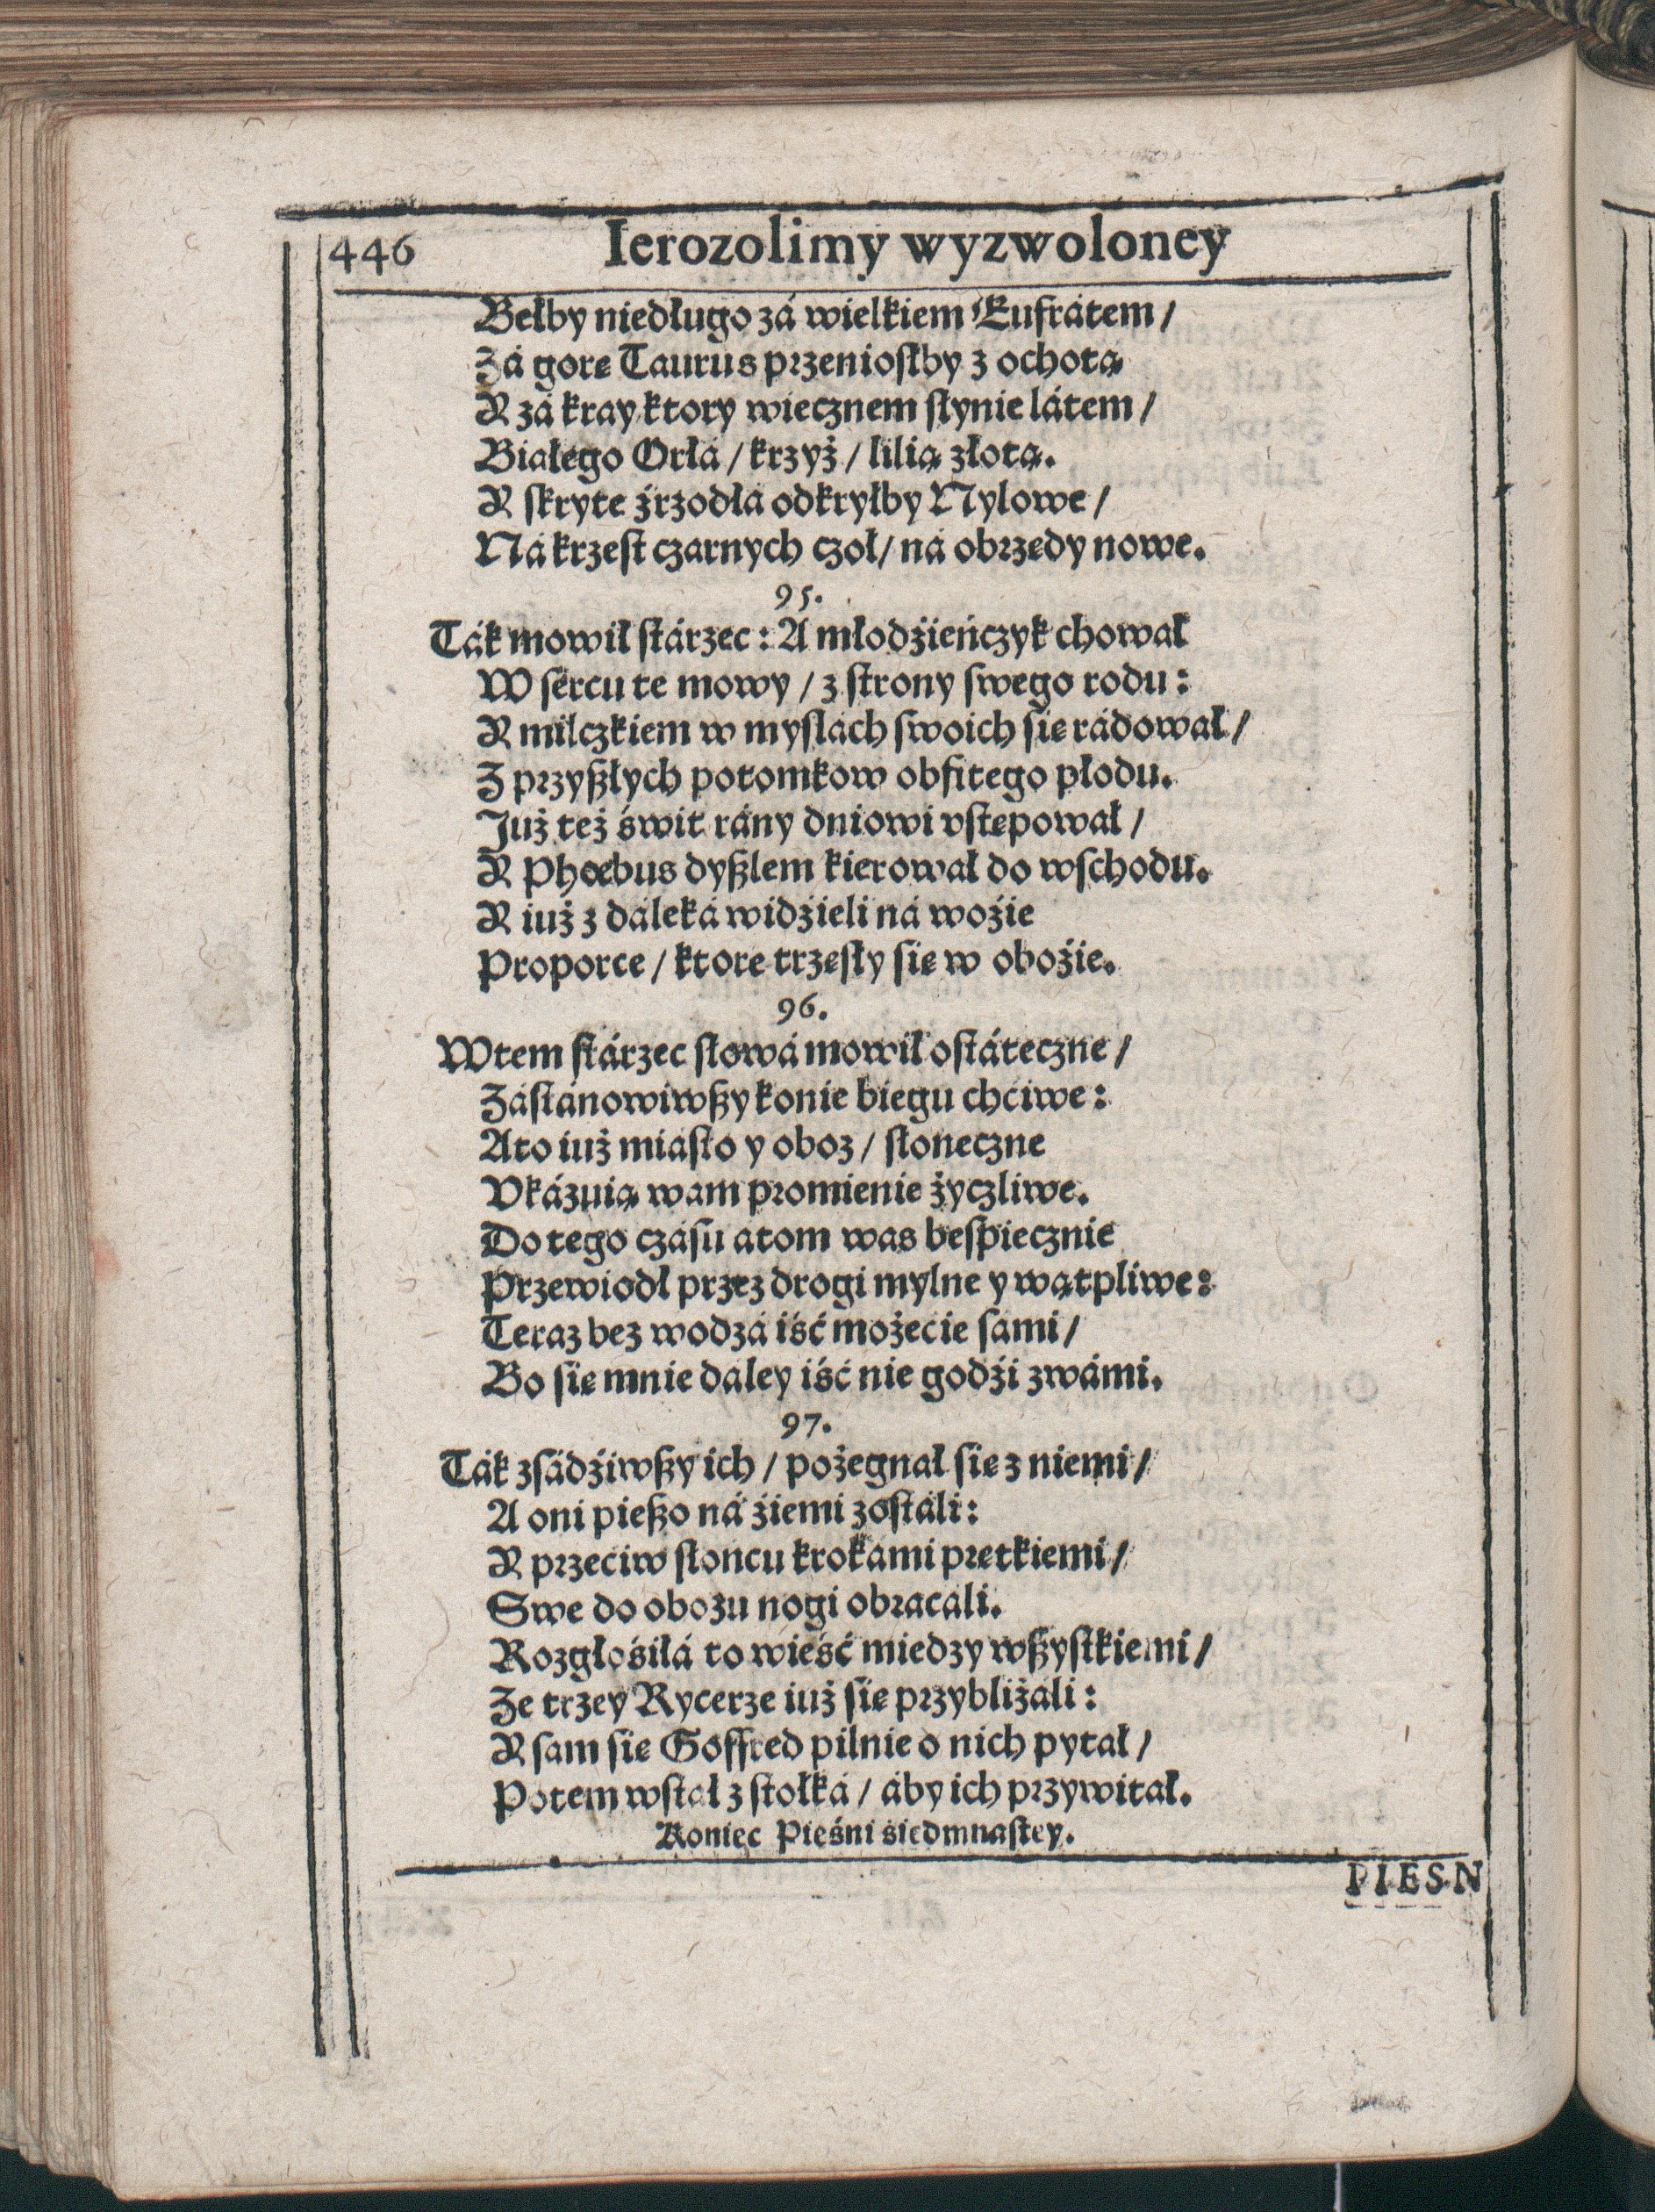 446 Ierozolimy wyzwoloney
Bełby niedługo zá wielkiem Eufrátem/
Zá gorę Taurus przeniosłby z ochotą
Y zá kray ktory wiecznem słynie látem/
Białego Orłá/ krzyż/ lilią złotą.
Y skryte źrzodłá odkryłby Nylowe/
Ná krzest czarnych czoł/ ná obrzędy nowe.
95.
Ták mowił stárzec: A młodźieńczyk chował
W sercu te mowy/ z strony swego rodu:
Y milczkiem w myślách swoich się rádował/
Z przyszłych potomkow obfitego płodu.
Już też świt rány dniowi vstępował/
Y Phœbus dyszlem kierował do wschodu.
Y iuż z dáleká widźieli ná woźie
Proporce/ ktore trzęsły się w oboźie.
96.
Wtem stárzec słowá mowił ostáteczne/
Zástánowiwszy konie biegu chciwe:
Ato iuż miásto y oboz/ słoneczne
Vkázuią wam promienie życzliwe.
Do tego czásu atom was bespiecznie
Przewiodł przez drogi mylne y wątpliwe:
Teraz bez wodzá iść możecie sámi/
Bo się mnie daley iść nie godźi zwámi.
97.
Ták zsádźiwszy ich/ pożegnał się z niemi/
A oni pieszo ná źiemi zostáli:
Y przeciw słoncu krokámi prętkiemi/
Swe do obozu nogi obracali.
Rozgłośiłá to wieść między wszystkiemi/
Ze trzey Rycerze iuż się przybliżali:
Y sam się Goffred pilnie o nich pytał/
Potem wstał z stołká/ áby ich przywitał.
Koniec Pieśni śiedmnastey.
PIESN